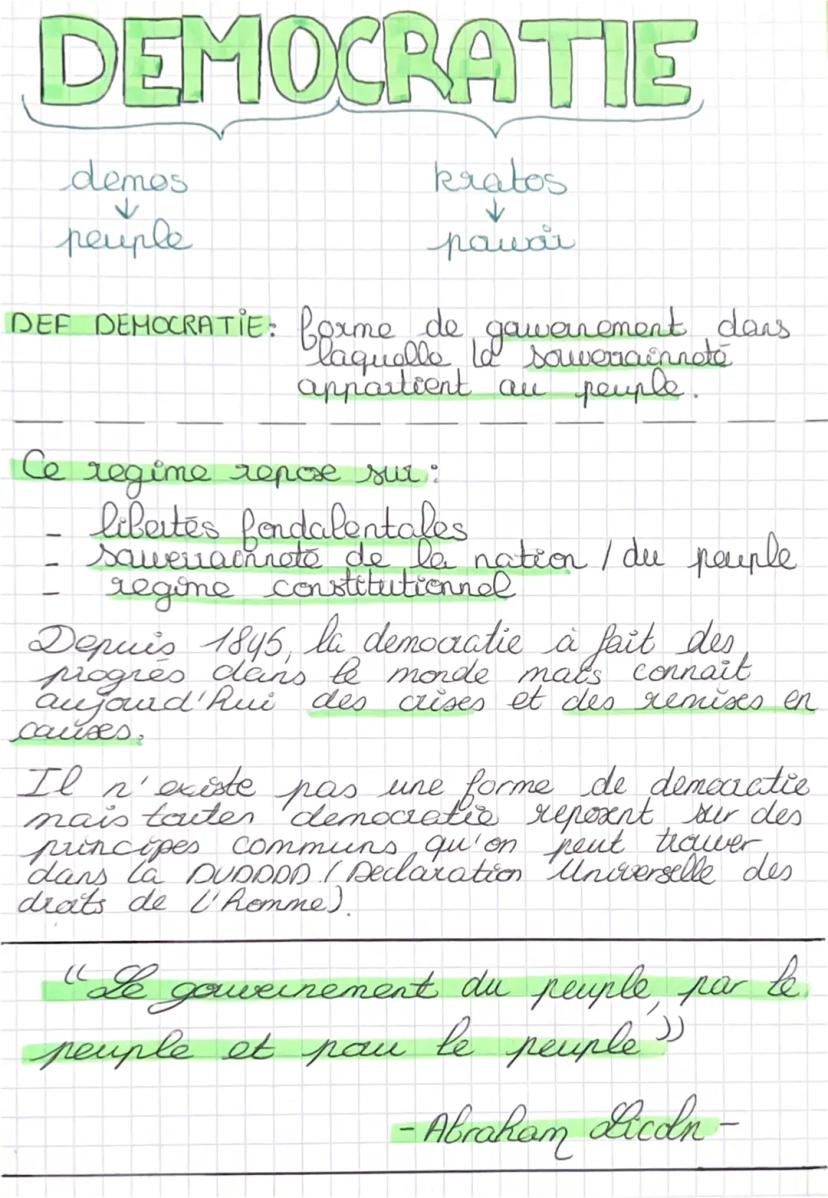 DEMOCRATIE
demos kratos
↓ ↓
peuple pouvoir
DEF DEMOCRATIE: forme de gouvernement dans
laquelle la souverainneté
appartient au peuple.
Ce regime repose sur :
- libertés fondalentales
- souverainneté de la nation / du peuple
- regime constitutionnel
Depuis 1845, la democratie à fait des
progrès dans le monde mais connait
aujourd'hui des crises et des remises en
causes.
Il n'existe pas une forme de democratie
mais toutes democratie reposent sur des
principes communs qu'on peut trouver
dans la DUDDDD (Declaration Universelle des
droits de l'homme).
"Le gouvernement du peuple, par le
peuple et pour le peuple"
- Abraham Licoln -